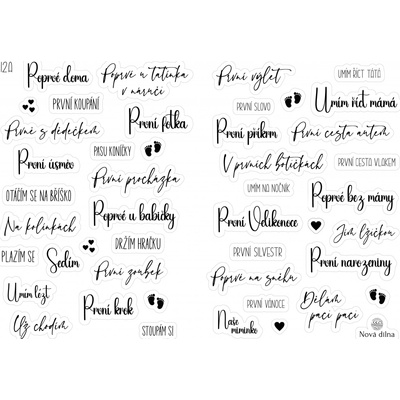 Poprvé doma
Poprvé u tatínka
v náručí
PRVNÍ KOUPÁNÍ
První s dědečkem
První fotka
První úsměv
PASU KONÍČKY
První procházka
OTÁČÍM SE NA BŘÍŠKO
Poprvé u babičky
Na kolínkách
DRŽÍM HRAČKU
PLAZÍM SE
Sedím
První zoubek
Umím lézt
První krok
Už chodím
STOUPÁM SI
První výlet
UMÍM ŘÍCT TÁTO
PRVNÍ SLOVO
Umím říct mámá
První příkrm
První cesta autem
V prvních botičkách
PRVNÍ CESTA VLAKEM
UMÍM NA NOČNÍK
Poprvé bez mámy
První Velikonoce
Jím lžičkou
PRVNÍ SILVESTR
První narozeniny
Poprvé na sněhu
PRVNÍ VÁNOCE
Dělám
paci paci
Naše
miminko
Nová dílna